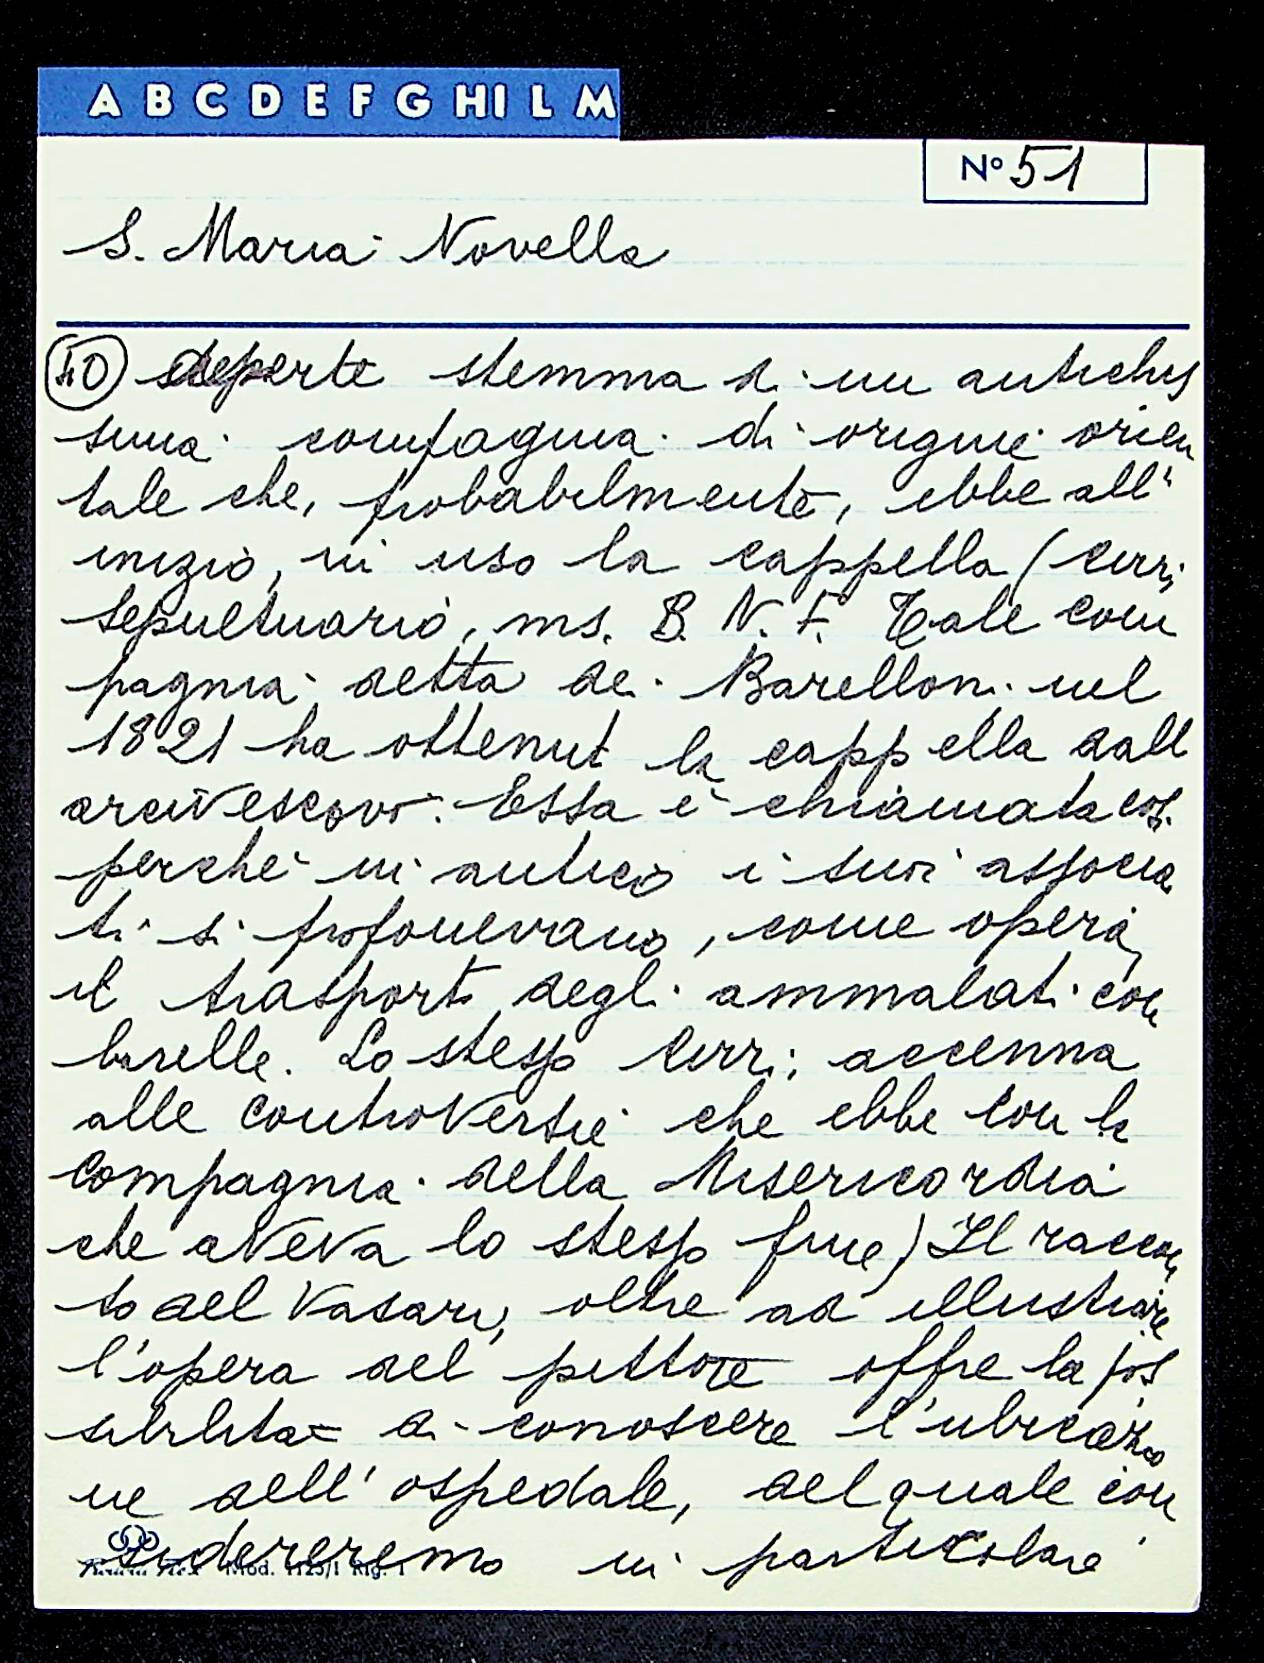 A B C D E F G HI L M
Nº 51
S. Maria Novella
40 stemma di un antichis
sima compagnia di origine orien
tale che, probabilmente, ebbe all'
inizio, in uso la cappella (Cirri,
Sepultuario, ms. B. N. F. Tale com
pagnia detta dei Barelloni nel
1821 ha ottenut la cappella dall
arcivescovo. Essa è chiamata cos.
perché in antico i suoi associa
ti si proponevano, come opera,
il trasporto degli ammalati con
barelle. Lo stesso Cirri; accenna
alle controversie che ebbe con la
Compagnia della Misericordia
che aveva lo stesso fine) Il raccon
to del Vasari, oltre ad illustrare
l'opera del pittore offre la pos
sibilità di conoscere l'ubicazio
ne dell'ospedale, del quale con
sidereremo in particolare
Mod. 1125/1 Rig. 1